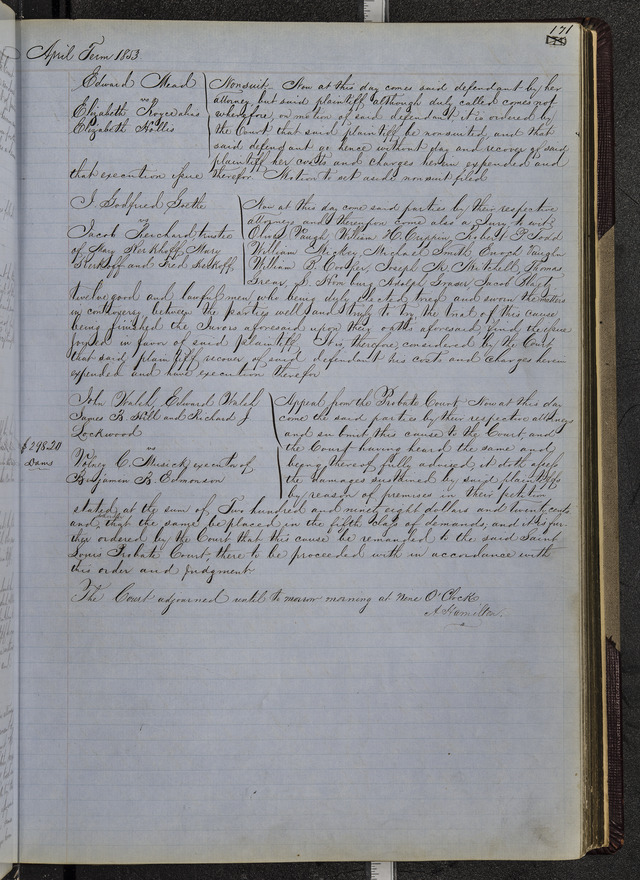 171
April Term 1853
Edward Mead
vs
Elizabeth Royce alias
Elizabeth Hollis
Nonsuit. Now at this day comes said defendant by her
attorney but said plaintiff although duly called comes not
wherefore, on motion of said defendant it is ordered by
the Court that said plaintiff be nonsuited, and that
said defendant go hence without day and recover of said
plaintiff her costs and charges herein expended and
that execution issue therefor. Motion to set aside nonsuit filed
J. Godfried Goethe
vs
Jacob trustee
of Mary Kerkhoff, Mary
Kerkhoff and Fred Kerkhoff,
Now at this day come said parties by their respective
attorneys and thereupon come also a Jury to wit
Oliver Vaugh, William H. Robert
William Hickey, Michael Smith Enoch Vaughn
William B. Cowper, Joseph K. Mitchell, Thomas
S. Adolph Jacob
twelve good and lawful men who being duly elected tried and sworn the matters
in controversy between the parties well and truly to try, the trial of this cause
being finished the Jurors aforesaid upon their oaths aforesaid find the issue
joined in favor of said plaintiff. It is therefore considered by the Court
that said plaintiff recover of said defendant his costs and charges herein
expended and have execution therefor
John Walsh, Edward Walsh
James B. Hill and Richard J
Lockwood
vs
Volney C. Musick executor of
Benjamin B. Edmonson
$298.20
Dams
Appeal from the Probate Court Now at this day
come the said parties by their respective attorneys
and submit this cause to the Court, and
the Court having heard the same and
being thereof fully advised, it doth assess
the damages sustained by said plaintiffs
by reason of premises in their petition
stated at the sum of Two hundred and ninety eight dollars and twenty cents
and that the same be placed in the fifth class of demands, and it is fur-
ther ordered by the Court that this cause be remanded to the said Saint
Louis Probate Court, there to be proceeded with in accordance with
this order and Judgment
The Court adjourned until to morrow morning at nine O'Clock
A. Hamilton.